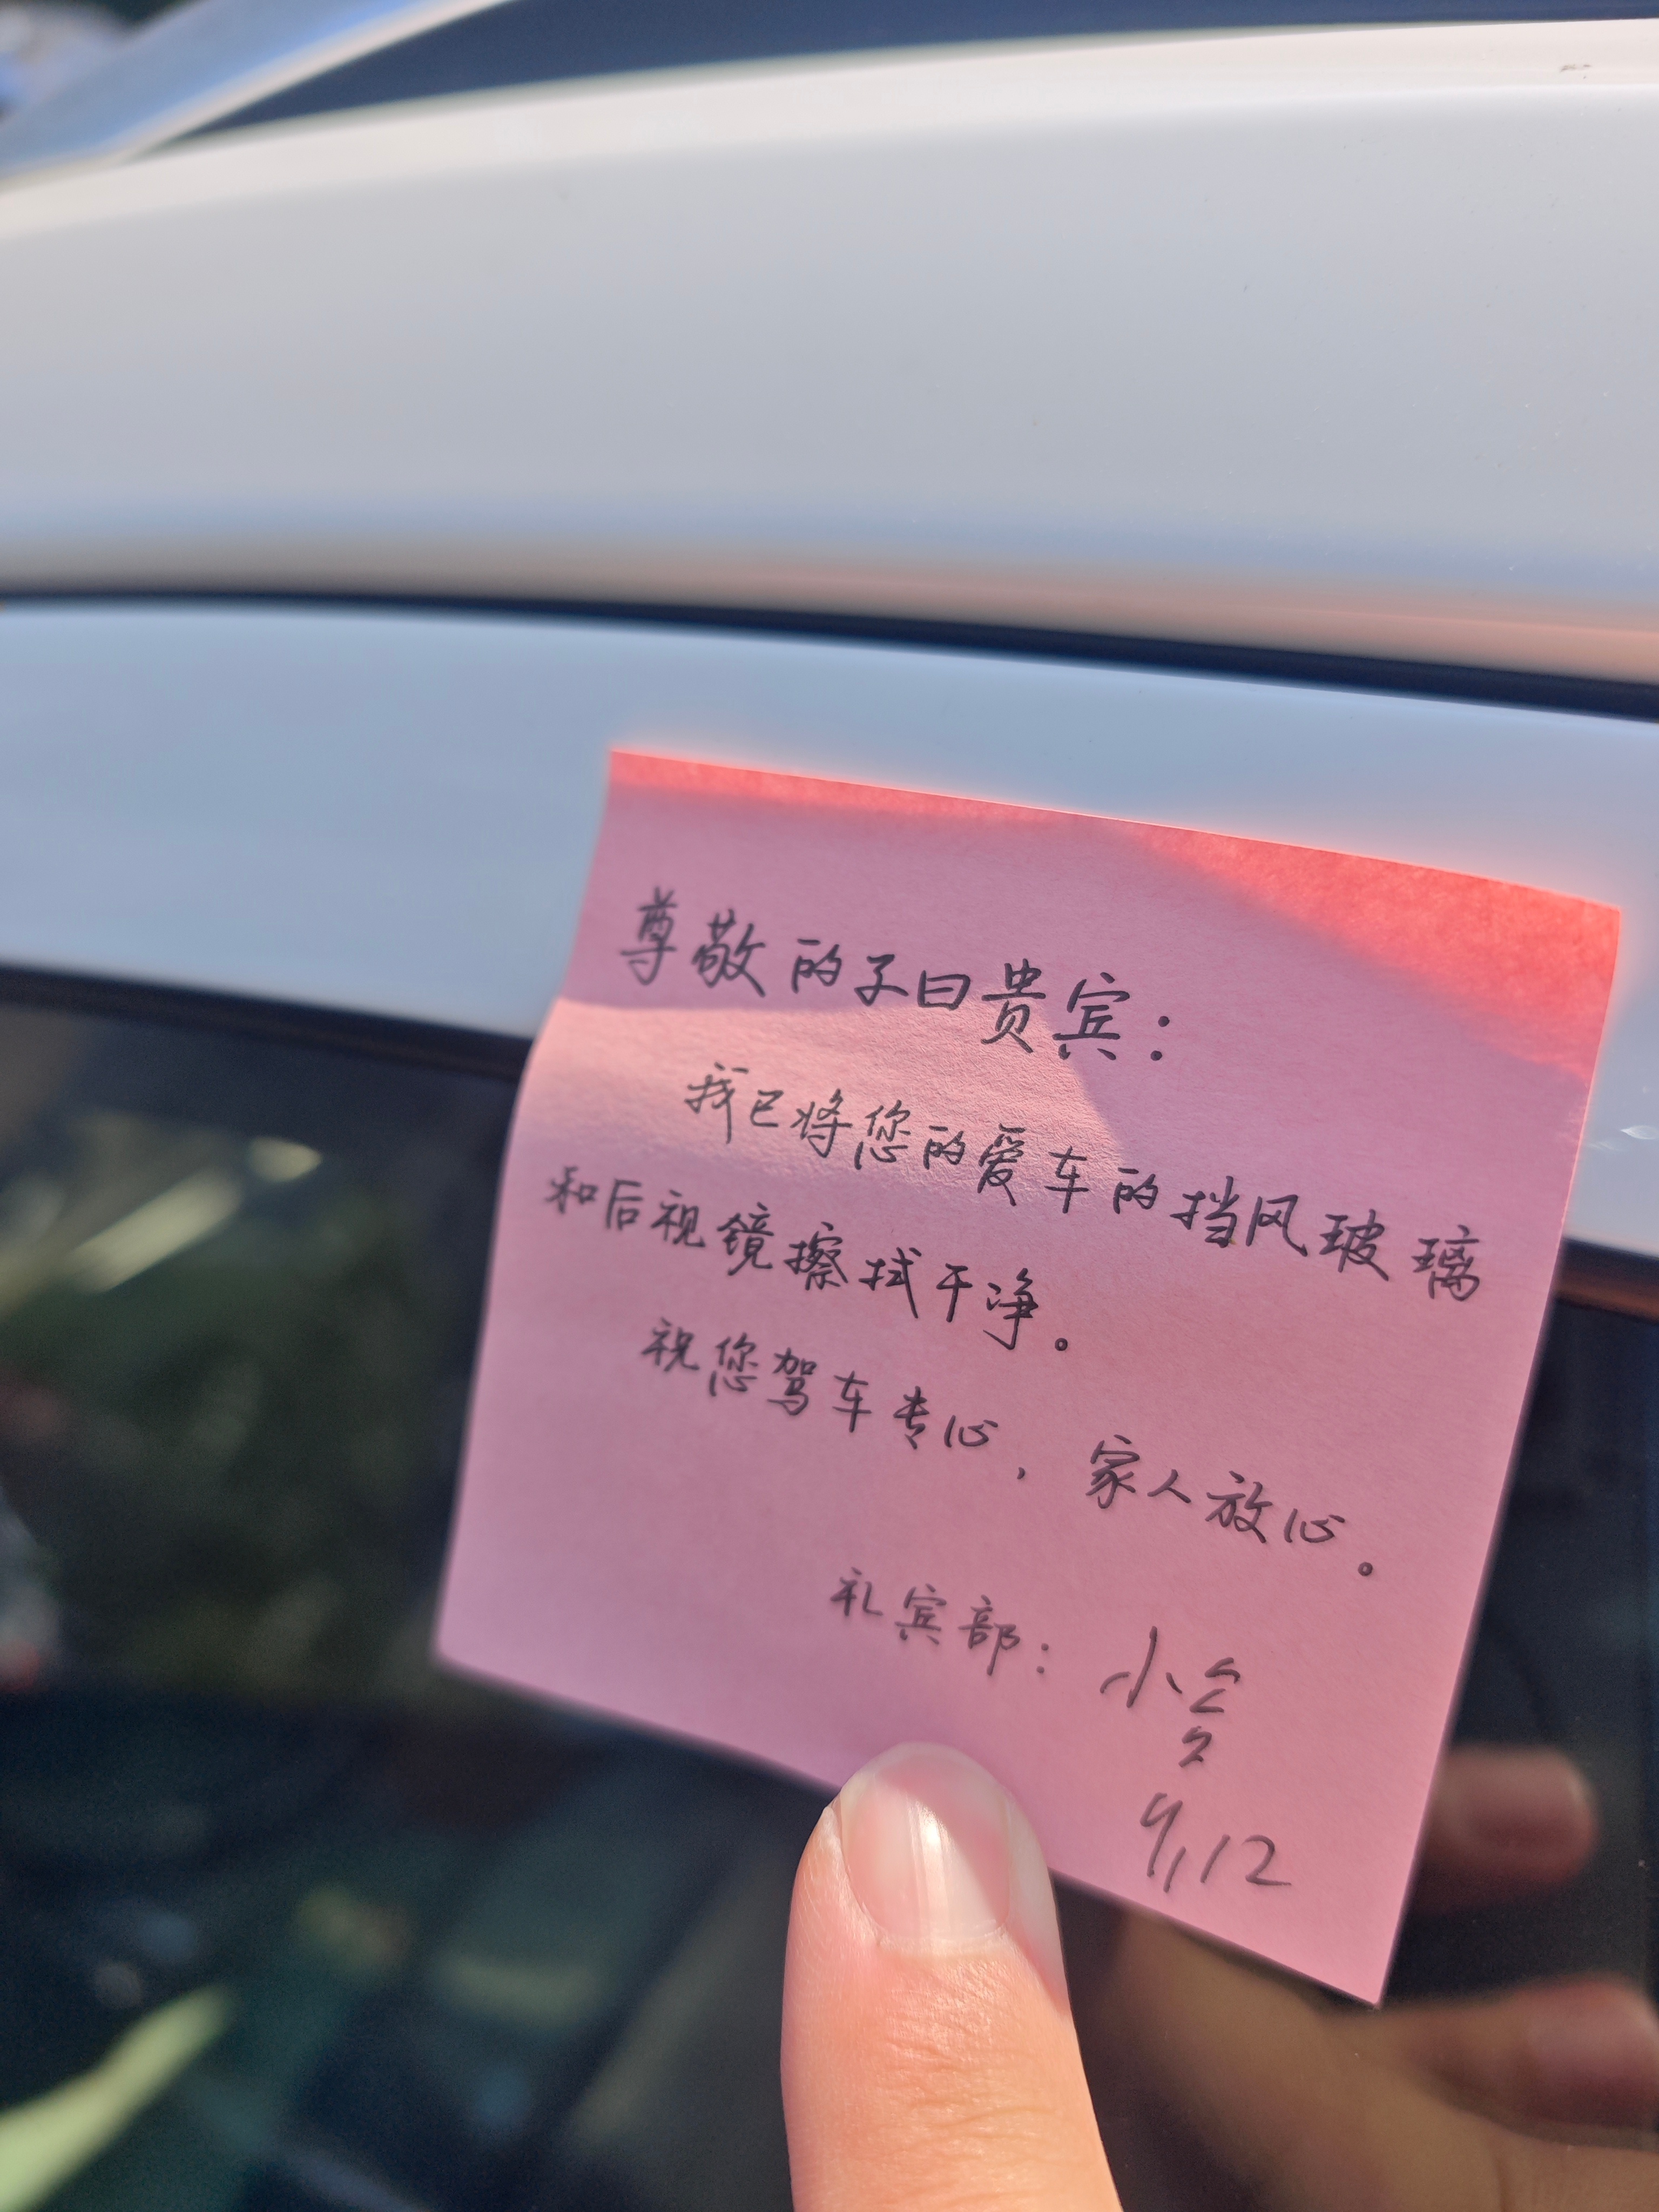 尊敬的子曰贵宾：
我已将您的爱车的挡风玻璃
和后视镜擦拭干净。
祝您驾车专心，家人放心。
礼宾部：小
9/12